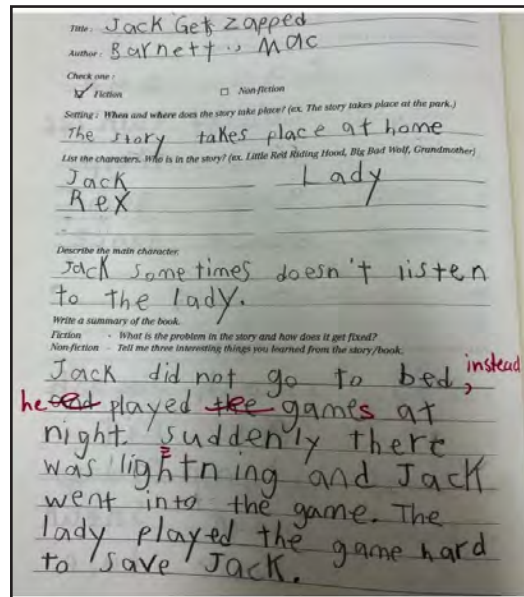 Title: Jack Gets Zapped
Author: Barnett, Mac
Check one:
Fiction Non-fiction
Setting: When and where does the story take place? (ex. The story takes place at the park.)
The story takes place at home
List the characters. Who is in the story? (ex. Little Red Riding Hood, Big Bad Wolf, Grandmother)
Jack Lady
Rex
Describe the main character.
Jack sometimes doesn't listen
to the lady.
Write a summary of the book.
Fiction - What is the problem in the story and how does it get fixed?
Non-fiction - Tell me three interesting things you learned from the story/book.
Jack did not go to bed, instead
he played games at
night. suddenly there
was lightning and Jack
went into the game. The
lady played the game hard
to save Jack.